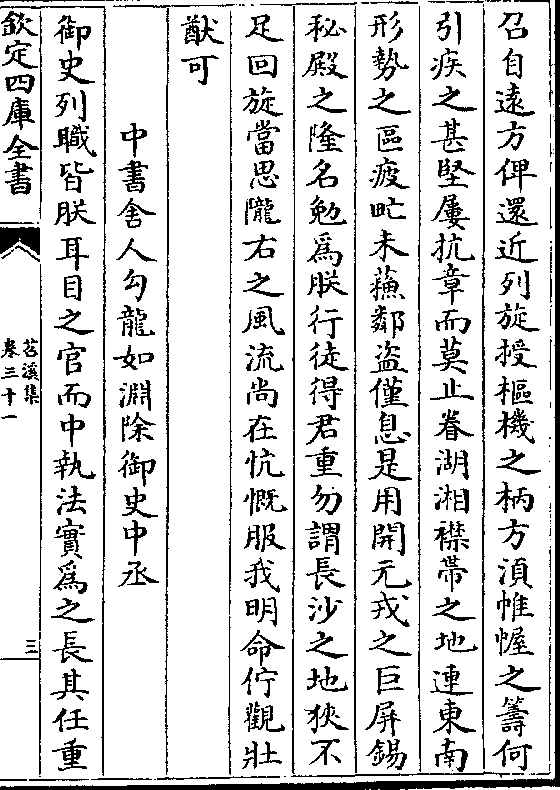 召自遠方俾還近列旋授樞機之柄方湏帷幄之籌何
引疾之甚堅屢抗章而莫止眷湖湘襟帶之地連東南
形勢之區疲甿未蘓鄰盜僅息是用開元戎之巨屏錫
秘殿之隆名勉爲朕行徒得君重勿謂長沙之地狹不
足回旋當思隴右之風流尚在忼慨服我明命佇觀壯
猷可
中書舍人勾龍如淵除御史中丞
御史列職皆朕耳目之官而中執法實爲之長其任重
欽定四庫全書
苕溪集
卷三十一
三